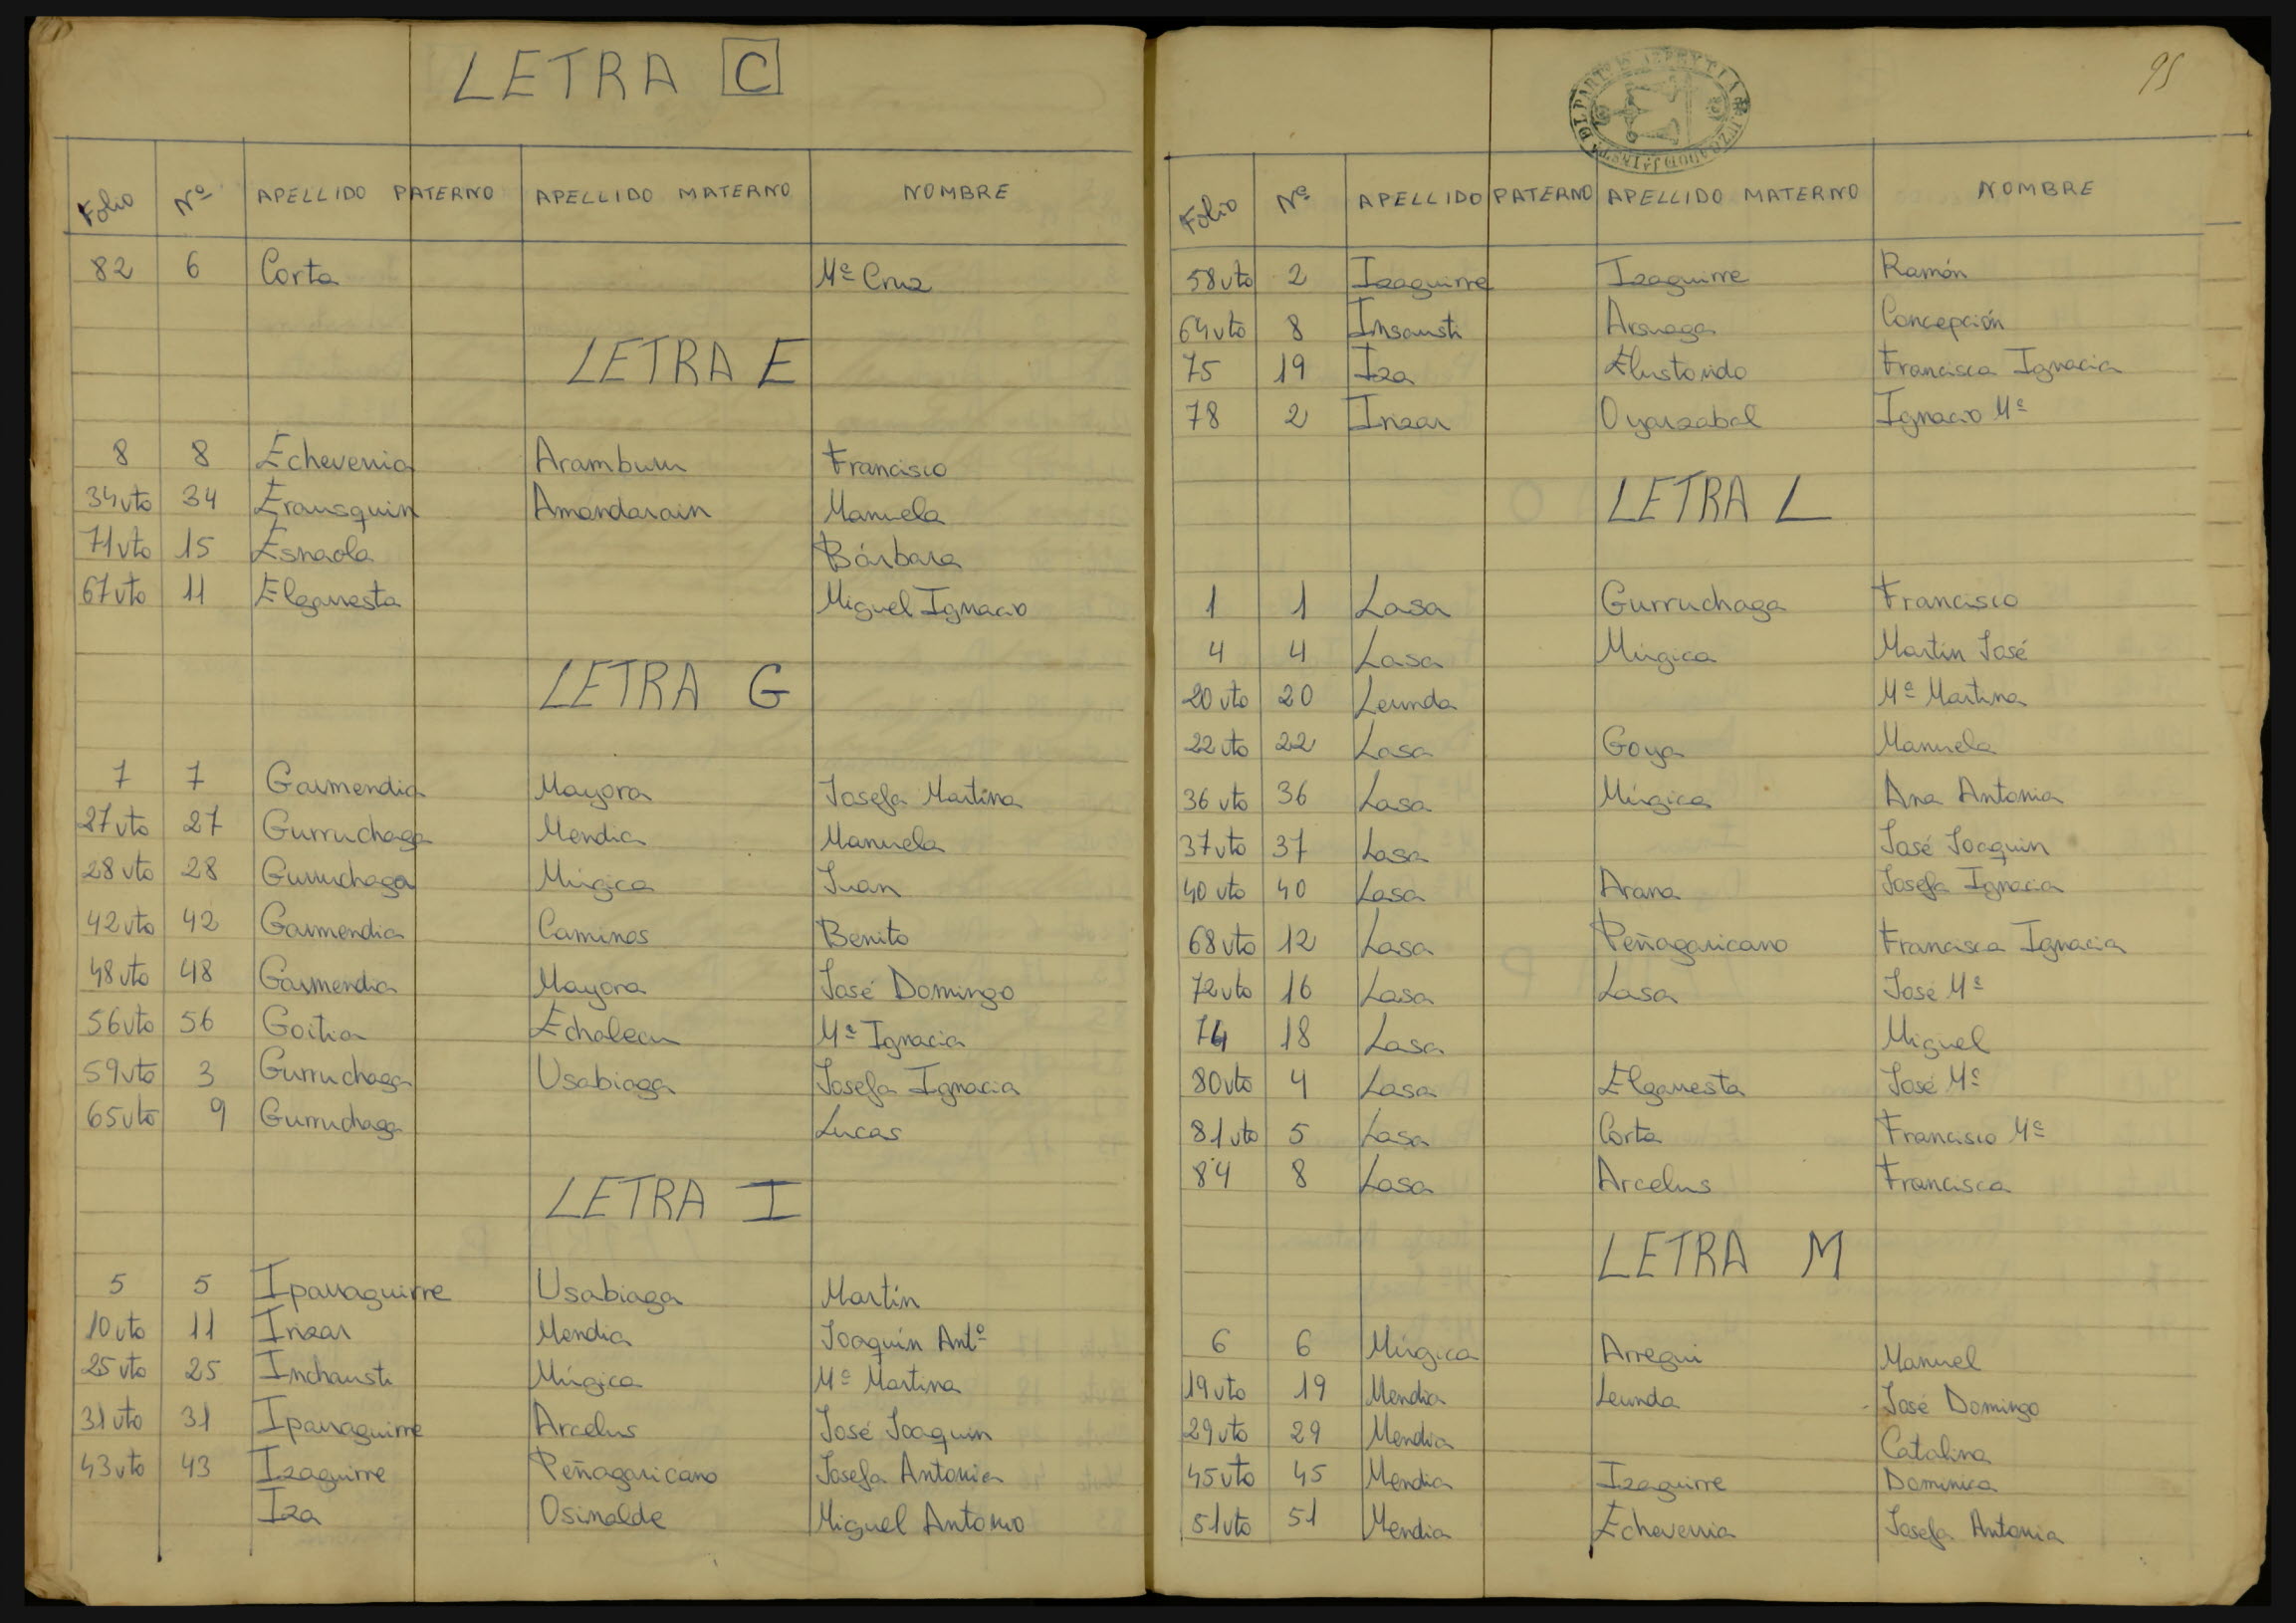 LETRA C
Folio Nº APELLIDO PATERNO APELLIDO MATERNO NOMBRE
82 6 Corta Mª Cruz
LETRA E
8 8 Echeverria Aramburu Francisco
34 vto 34 Erausquin Amondarain Manuela
71 vto 15 Esnaola Bárbara
67 vto 11 Elgarresta Miguel Ignacio
LETRA G
7 7 Garmendia Mayora Josefa Martina
27 vto 27 Gurruchaga Mendia Manuela
28 vto 28 Gurruchaga Múgica Juan
42 vto 42 Garmendia Caminos Benito
48 vto 48 Garmendia Mayora José Domingo
56 vto 56 Goitia Echalecu Mª Ignacia
59 vto 3 Gurruchaga Usabiaga Josefa Ignacia
65 vto 9 Gurruchaga Lucas
LETRA I
5 5 Iparraguirre Usabiaga Martín
10 vto 11 Inzar Mendia Joaquín Antº
25 vto 25 Inchausti Múgica Mª Martina
31 vto 31 Iparraguirre Arcelus José Joaquin
43 vto 43 Izaguirre Peñagaricano Josefa Antonia
Iza Osinalde Miguel Antonio
95
Folio Nº APELLIDO PATERNO APELLIDO MATERNO NOMBRE
58 vto 2 Izaguirre Izaguirre Ramón
64 vto 8 Insausti Arsuaga Concepción
75 19 Iza Elustondo Francisca Ignacia
78 2 Inzar Oyarzabal Ignacio Mª
LETRA L
1 1 Lasa Gurruchaga Francisco
4 4 Lasa Múgica Martín José
20 vto 20 Leunda Mª Martina
22 vto 22 Lasa Goya Manuela
36 vto 36 Lasa Múgica Ana Antonia
37 vto 37 Lasa José Joaquin
40 vto 40 Lasa Arana Josefa Ignacia
68 vto 12 Lasa Peñagaricano Francisca Ignacia
72 vto 16 Lasa Lasa José Mª
74 18 Lasa Miguel
80 vto 4 Lasa Elgarresta José Mª
81 vto 5 Lasa Corta Francisco Mª
84 8 Lasa Arcelus Francisca
LETRA M
6 6 Múgica Arregui Manuel
19 vto 19 Mendia Leunda José Domingo
29 vto 29 Mendia Catalina
45 vto 45 Mendia Izaguirre Dominica
51 vto 51 Mendia Echeverria Josefa Antonia